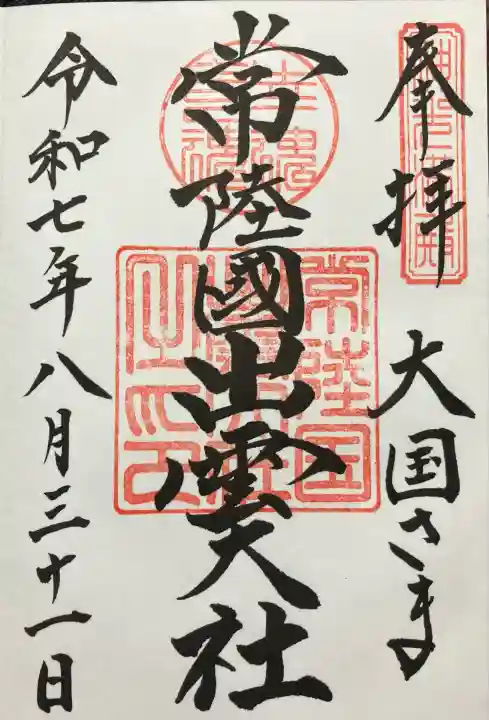 奉拝
大国さま
常陸國出雲大社
常陸国
令和七年八月三十一日